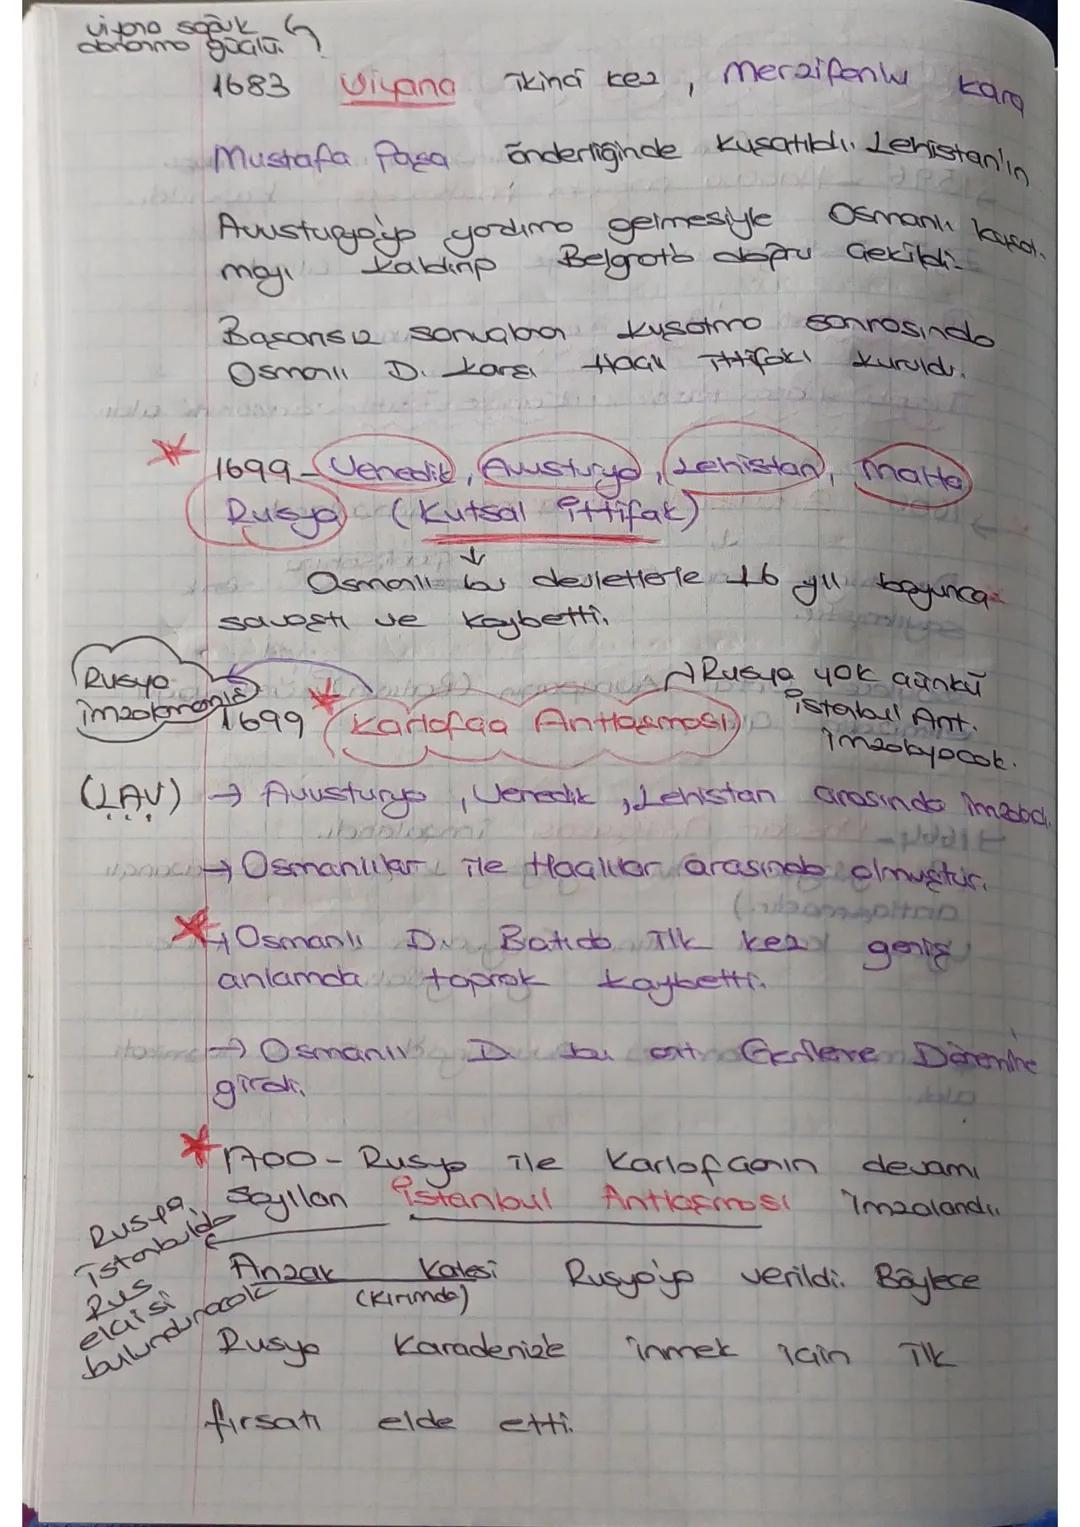 viyana soğuk
donanma güçlü.
1683 Viyana ikinci kez, Merzifonlu Kara
Mustafa Paşa önderliğinde kuşatıldı. Lehistan'ın
Avusturya'ya yardıma gelmesiyle Osmanlı kuşat-
mayı kaldırıp Belgrat'a doğru çekildi.
Başarısız sonuçlanan kuşatma sonrasında
Osmanlı D. karşı Haçlı ittifakı kuruldu.
1699 - Venedik, Avusturya, Lehistan, Malta
Rusya (Kutsal ittifak)
Osmanlı bu devletlerle 16 yıl boyunca
savaştı ve kaybetti.
Rusya
imzalamamış
→ Rusya yok çünkü
istabul Ant.
imzalayacak.
1699 Karlofça Antlaşması
(LAV) → Avusturya, Venedik, Lehistan arasında imzaladı.
→ Osmanlılar ile Haçlılar arasında olmuştur.
→ Osmanlı D. Batıda ilk kez geniş
anlamda toprak kaybetti.
→ Osmanlı D. bu ant Gerileme Dönemine
girdi.
1700 - Rusya ile Karlofçanın devamı
sayılan istanbul Antlaşması imzalandı.
Rusya,
istabulda
Rus
elçisi
bulunduracak
Anzak Kalesi Rusya'ya verildi. Böylece
(Kırımda)
Rusya Karadenize inmek için ilk
fırsatı elde etti.